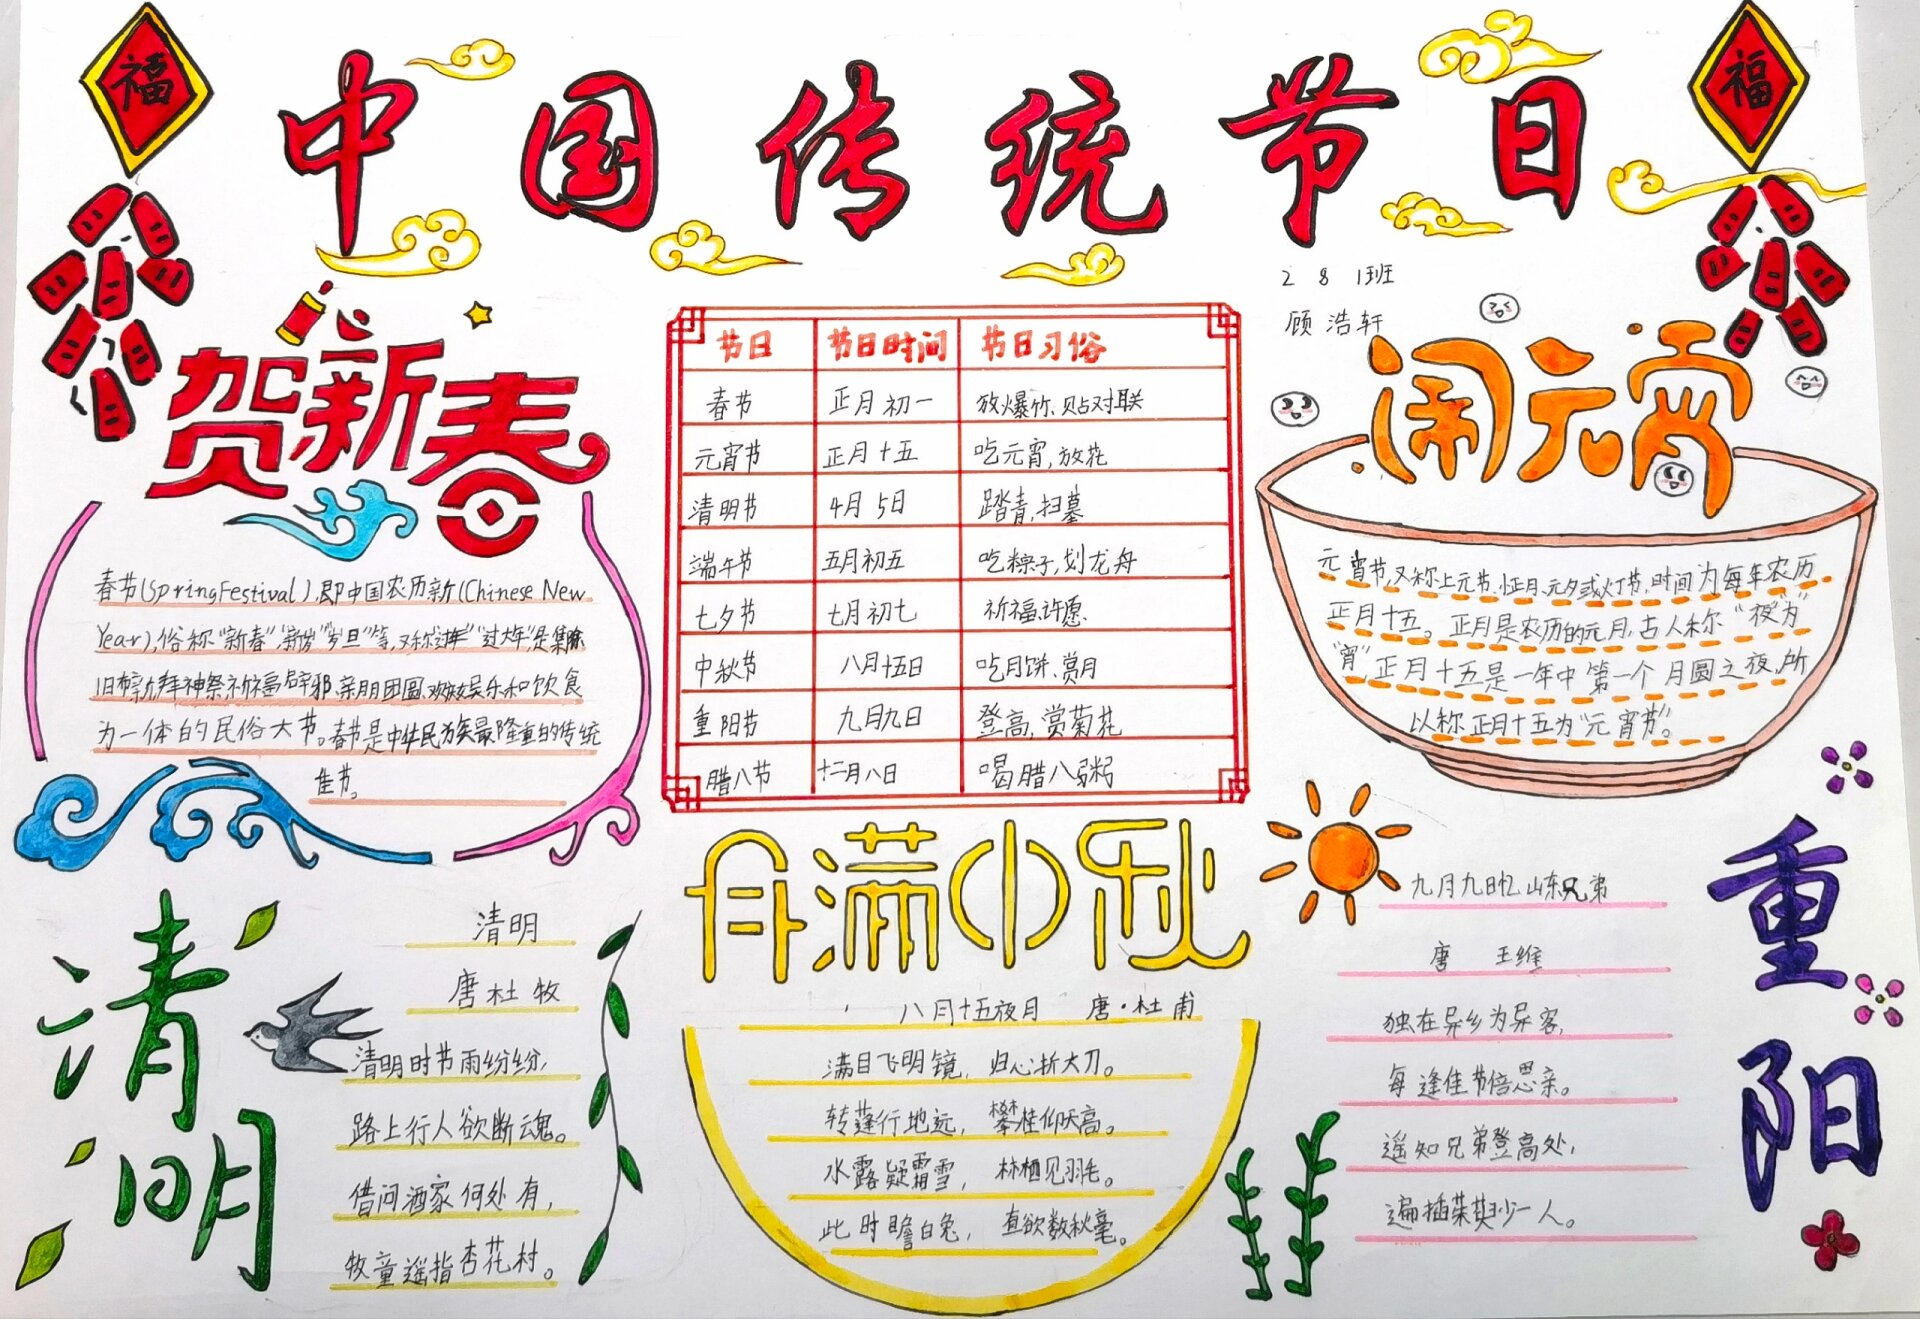 福
福
中国传统节日
2 8 1班
顾浩轩
贺新春
春节(Spring Festival),即中国农历新(Chinese New
Year),俗称“新春”“新岁”“岁旦”等,又称“过年”“过大年”,是集除
旧布新、拜神祭祖、祈福辟邪、亲朋团圆、欢娱乐和饮食
为一体的民俗大节。春节是中华民族最隆重的传统
佳节。
节日 节日时间 节日习俗
春节 正月初一 放爆竹、贴对联
元宵节 正月十五 吃元宵,放花
清明节 4月5日 踏青,扫墓
端午节 五月初五 吃粽子,划龙舟
七夕节 七月初七 祈福,许愿
中秋节 八月十五日 吃月饼、赏月
重阳节 九月九日 登高,赏菊花
腊八节 十二月八日 喝腊八粥
闹元宵
元宵节,又称上元节、小正月、元夕或灯节,时间为每年农历
正月十五。正月是农历的元月,古人称“夜”为
“宵”,正月十五是一年中第一个月圆之夜,所
以称正月十五为“元宵节”。
清明
清明
唐杜牧
清明时节雨纷纷,
路上行人欲断魂。
借问酒家何处有,
牧童遥指杏花村。
月满中秋
八月十五夜月 唐·杜甫
满目飞明镜, 归心折大刀。
转蓬行地远, 攀桂仰天高。
水露疑霜雪, 林栖见羽毛。
此时瞻白兔, 直欲数秋毫。
重阳
九月九日忆山东兄弟
唐 王维
独在异乡为异客,
每逢佳节倍思亲。
遥知兄弟登高处,
遍插茱萸少一人。